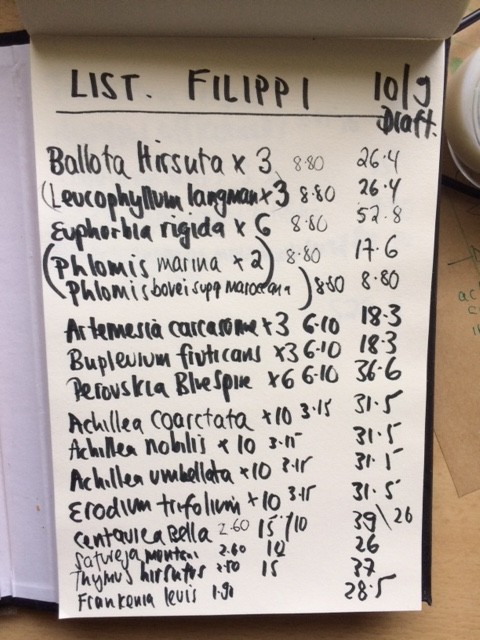 LIST. FILIPPI 10/9
Draft.
Ballota Hirsuta x 3 8.80 26.4
(Leucophyllum langman x 3 8.80 26.4
Euphorbia rigida x 6 8.80 52.8
(Phlomis marina x 2) 8.80 17.6
Phlomis bovei supp maroccana) 8.80 8.80
Artemesia carcarome x 3 6.10 18.3
Buplevium fruticans x 3 6.10 18.3
Perovskia Blue Spire x 6 6.10 36.6
Achillea coarctata x 10 3.15 31.5
Achillea nobilis x 10 3.15 31.5
Achillea umbellata x 10 3.15 31.5
Erodium trifolium x 10 3.15 31.5
Centaurea Bella 2.60 15/10 39\26
Satureja montana 2.60 10 26
Thymus hirsutus 2.50 15 37
Frankenia levis 1.90 28.5